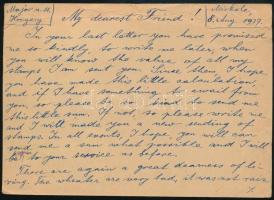 Major u. 11.
Hungary
My dearest Friend!
Miskolc,
8. Aug 1937.
In your last letter you have promised
me so kindly, to write me later, when
you will know the value of all my
stamps I am sent you. Since then I hope
you have made this little calculation,
and if I have something to await from
you, so please be so kind to send me
this little sum. If not, so please write me
and I will made you a new sending of
stamps. In all events, I hope, you will can
send me a sum what possible and I will
be to your service as before.
There are again a great dearness of li-
ving. The wheater are very bad, it was not rain